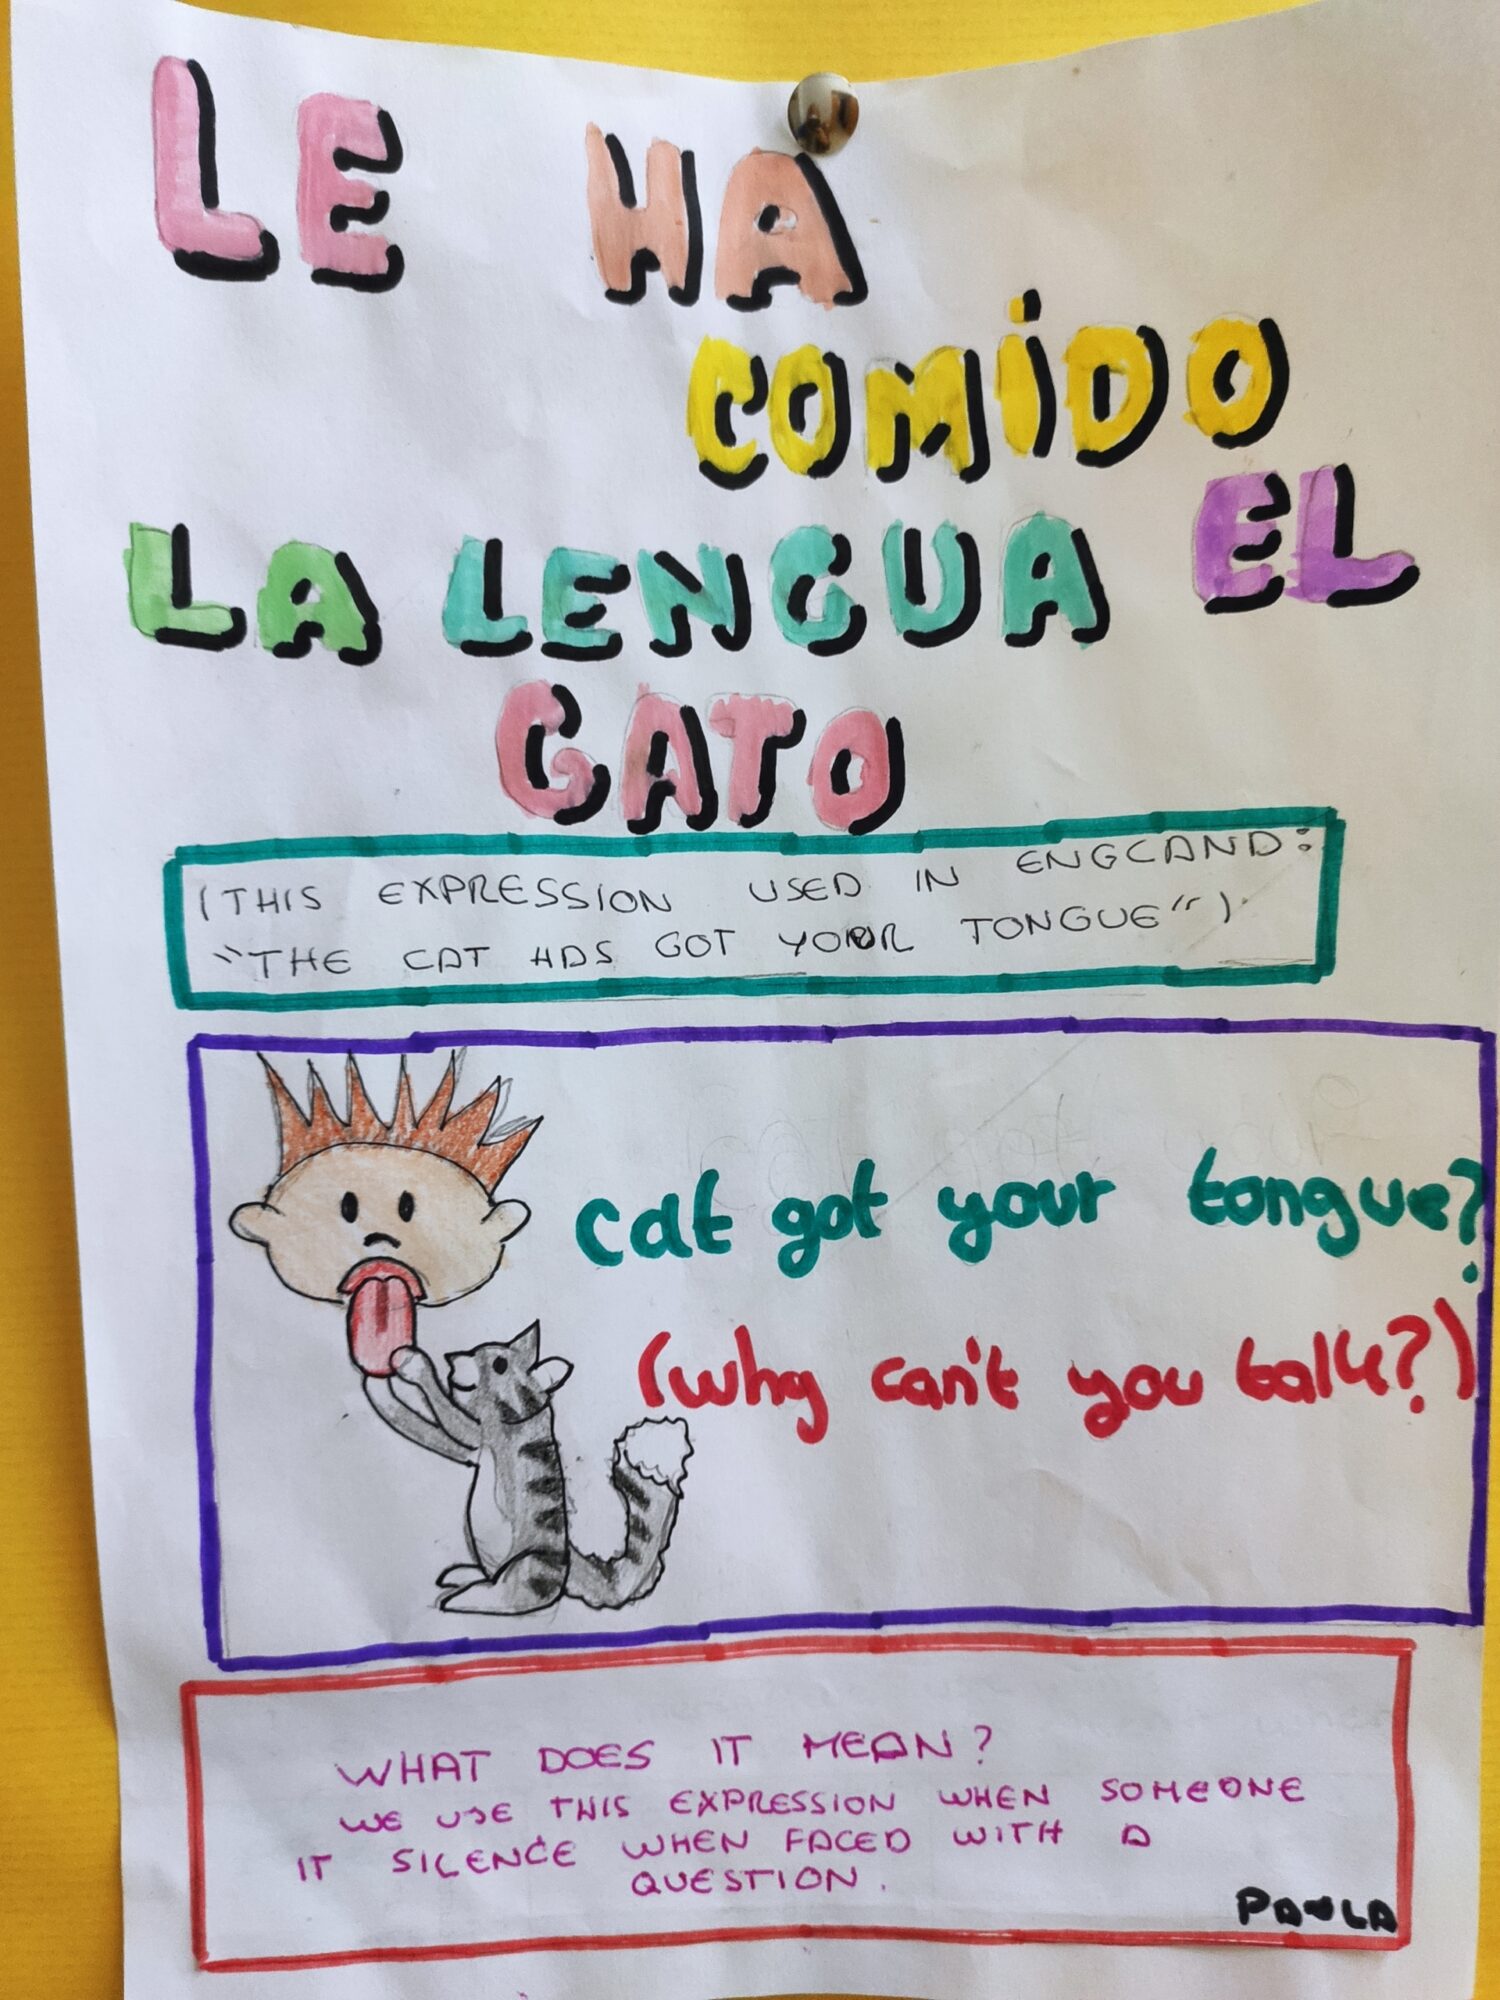 LE HA
COMIDO
LA LENGUA EL
GATO
(THIS EXPRESSION USED IN ENGLAND:
"THE CAT HAS GOT YOUR TONGUE")
cat got your tongue?
(why can't you talk?)
WHAT DOES IT MEAN?
WE USE THIS EXPRESSION WHEN SOMEONE
IT SILENCE WHEN FACED WITH A
QUESTION.
PAULA